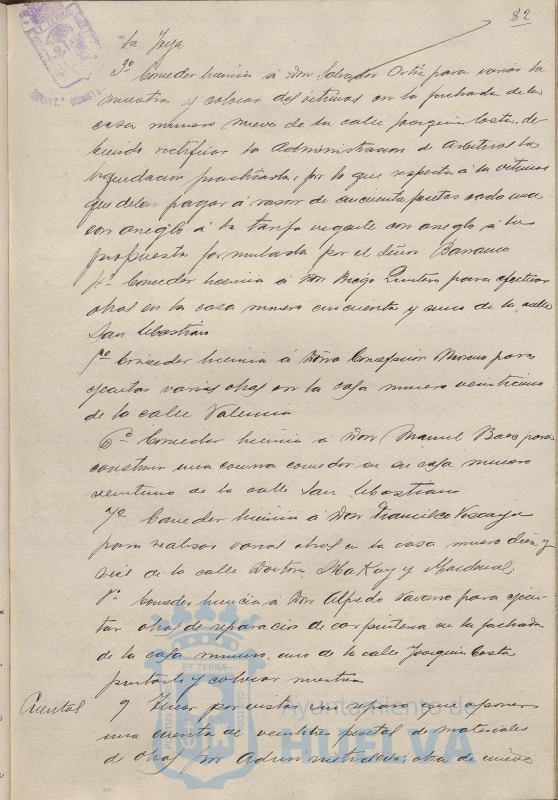 82
la Joya
3º Conceder licencia á Don Salvador Ortiz para variar la
muestra y colocar dos vitrinas en la fachada de la
casa numero nueve de la calle Joaquin Costa, de-
biendo rectificar la Administracion de Arbitrios la
liquidacion practicada, por lo que respecta á la vitrinas
que deben pagar á razon de cincuenta pesetas cada una
con arreglo á la tarifa vigente con arreglo á la
propuesta formulada por el Señor Barranco
4º Conceder licencia á Don Diego Quintero para efectuar
obras en la casa numero cincuenta y cinco de la calle
San Sebastián
5º Conceder licencia á Doña Concepcion Moreno para
ejecutar varias obras en la casa numero veinticinco
de la calle Valencia
6º Conceder licencia a Don Manuel Baez para
construir una cocina comedor en su casa numero
veintiuno de la calle San Sebastian
7º Conceder licencia á Don Francisco Vizcaya
para realizar varias obras en la casa numero diez y
seis de la calle Doctora MaKay y Macdonal,
8º Conceder licencia á Don Alfredo Navarro para ejecu-
tar obras de reparación de carpinteria en la fachada
de la casa numero uno de la calle Joaquin Costa
pintarla y colocar muestra
Cuentas
9 Tener por vistas sin reparo que oponer
una cuenta de veintitres pesetas de materiales
de obras por Administracion; otra de nueve
PORTUS MARIS
ET TERRÆ
CUSTODIA
Ayuntamiento de
HUELVA